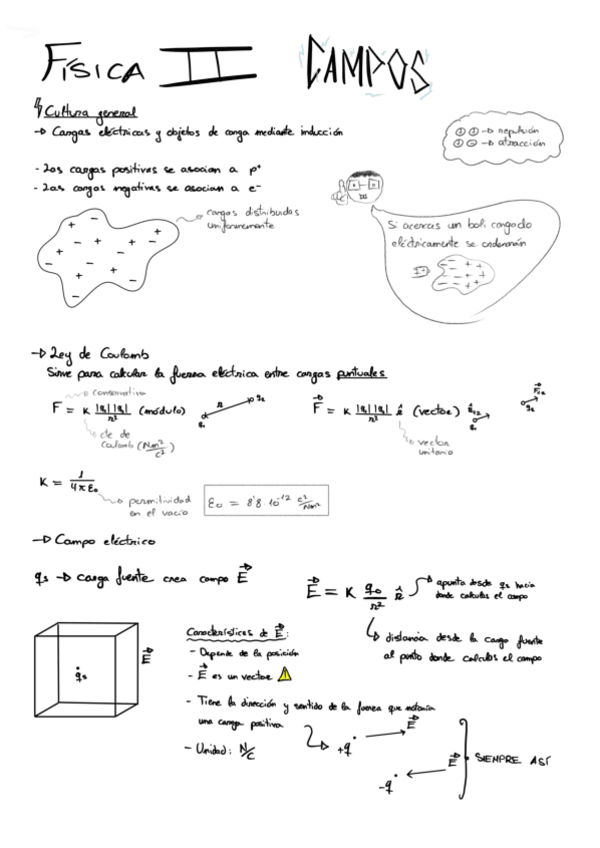 FÍSICA II CAMPOS
Cultura general
→ Cargas eléctricas y objetos de carga mediante inducción
⊕ ⊕ → repulsión
⊕ ⊖ → atracción
- Las cargas positivas se asocian a p⁺
- Las cargas negativas se asocian a e⁻
cargas distribuidas
uniformemente
Si acercas un boli cargado
eléctricamente se ordenarán
→ Ley de Coulomb
Sirve para calcular la fuerza eléctrica entre cargas puntuales
conservativa
F = K |q||q| / r² (módulo)
F = K |q||q| / r² r̂ (vector)
cte de
Coulomb (Nm²/C²)
vector
unitario
K = 1 / 4πε₀
permitividad
en el vacío
ε₀ = 8'8 · 10⁻¹² C²/Nm²
→ Campo eléctrico
qs → carga fuente crea campo E
E = K q₀ / r² r̂
apunta desde qs hacia
donde calculas el campo
distancia desde la carga fuente
al punto donde calculas el campo
qs
E
Características de E:
- Depende de la posición
- E es un vector
- Tiene la dirección y sentido de la fuerza que notaría
una carga positiva
- Unidad: N/C
+q E
-q E
SIEMPRE ASÍ